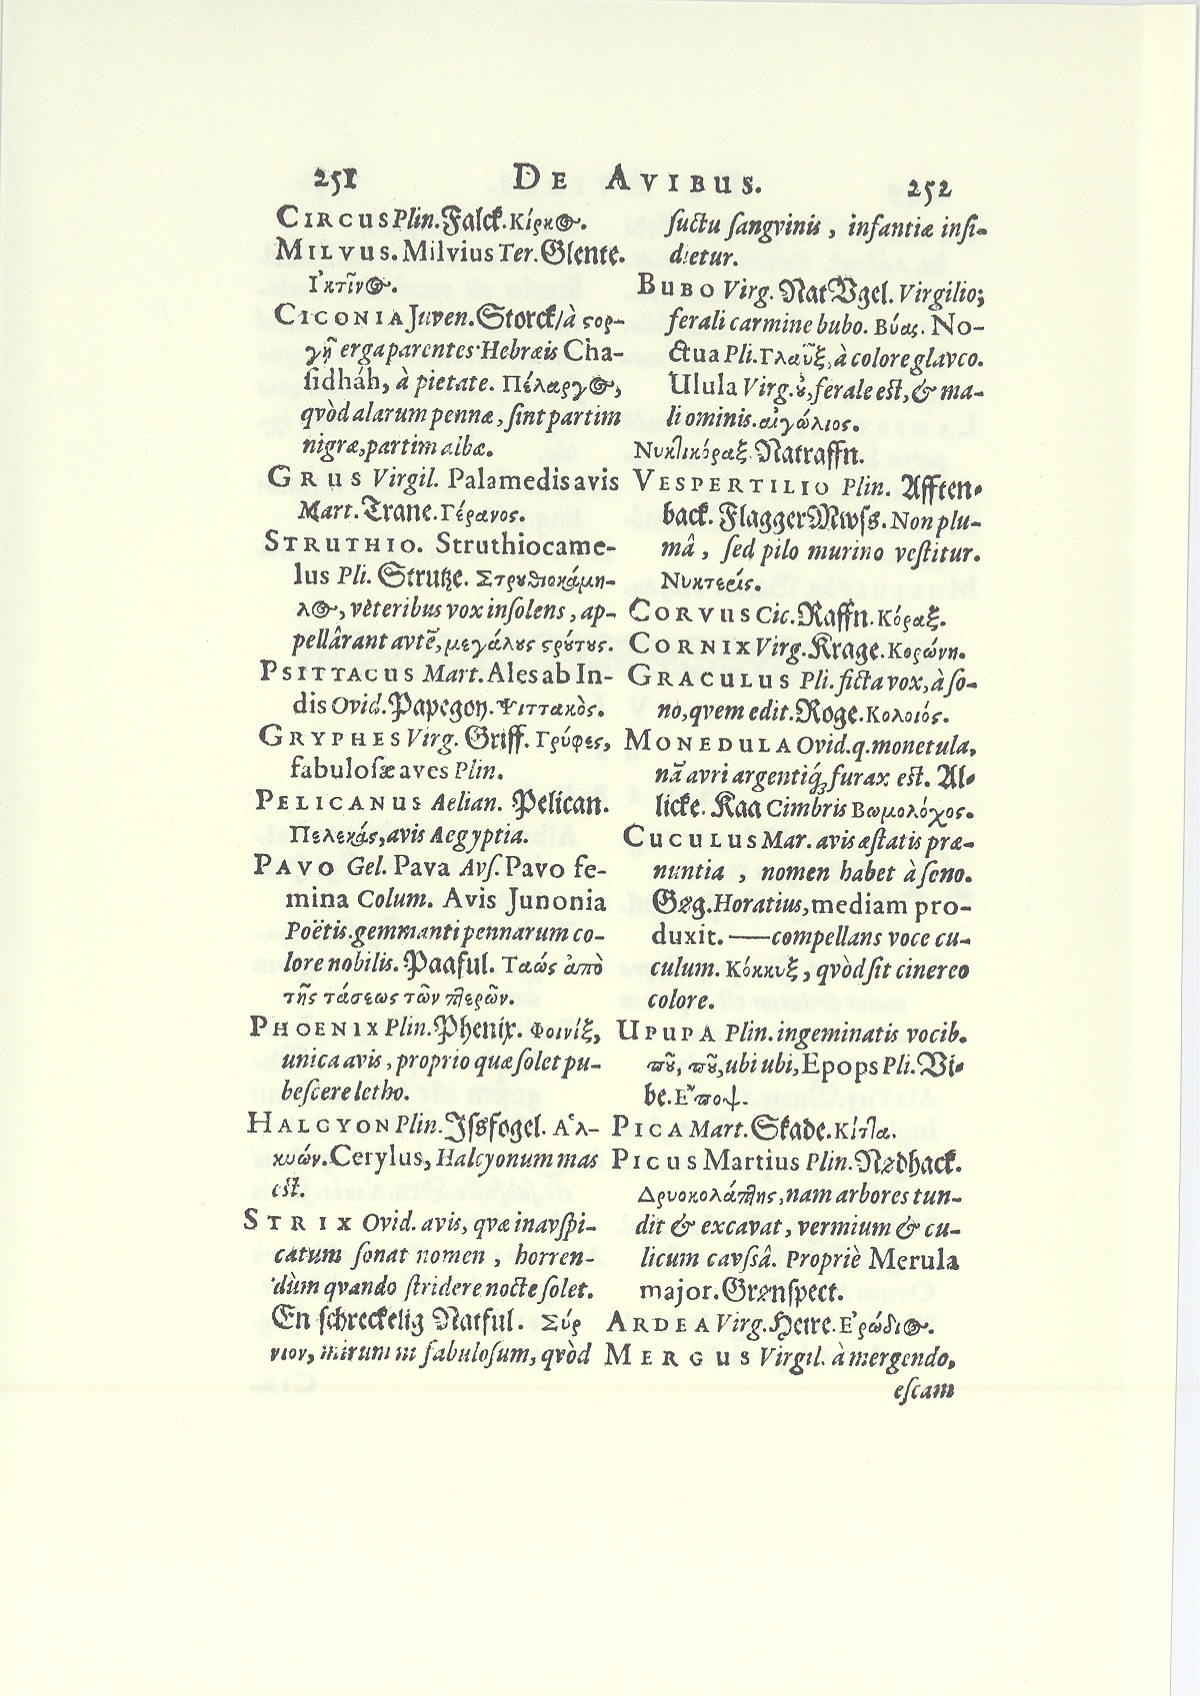 251 DE AVIBUS. 252
CIRCUS Plin. Falck. Κίρκος.
MILVUS. Milvius Ter. Glente.
Ἰκτῖνος.
CICONIA Juven. Storck/ à ϛορ-
γῇ erga parentes. Hebræis Cha-
sidháh, à pietate. Πέλαργος,
qvòd alarum pennæ, sint partim
nigræ, partim albæ.
GRUS Virgil. Palamedis avis
Mart. Trane. Γέρανος.
STRUTHIO. Struthiocame-
lus Pli. Strutze. Στρυθιοκάμη-
λος, veteribus vox insolens, ap-
pellârant avtẽ, μεγάλυς ϛρύτυς.
PSITTACUS Mart. Ales ab In-
dis Ovid. Papegoy. Ψιττακὸς.
GRYPHES Virg. Griff. Γρύφες,
fabulosæ aves Plin.
PELICANUS Aelian. Pelican.
Πελεκάς, avis Aegyptia.
PAVO Gel. Pava Avs. Pavo fe-
mina Colum. Avis Junonia
Poëtis. gemmanti pennarum co-
lore nobilis. Paaful. Ταώς ἀπὸ
τῆς τάσεως τῶν πτερῶν.
PHOENIX Plin. Phenix. Φοινίξ,
unica avis, proprio quæ solet pu-
bescere letho.
HALCYON Plin. Jssfogel. Ἁλ-
κυών. Cerylus, Halcyonum mas
est.
STRIX Ovid. avis, qvæ inavspi-
catum sonat nomen, horren-
dùm qvando stridere nocte solet.
En schreckelig Natful. Σύρ
νιον, mirum ni fabulosum, qvòd
suctu sangvinis, infantiæ insi-
dietur.
BUBO Virg. Nat Vgel. Virgilio;
ferali carmine bubo. Βύας. No-
ctua Pli. Γλαῦξ, à colore glavco.
Ulula Virg. ȣ, ferale est, & ma-
li ominis. αἰγώλιος.
Νυκτικόραξ. Natraffn.
VESPERTILIO Plin. Afften-
back. Flagger Mwss. Non plu-
mâ, sed pilo murino vestitur.
Νυκτερίς.
CORVUS Cic. Raffn. Κόραξ.
CORNIX Virg. Krage. Κορώνη.
GRACULUS Pli. ficta vox, à so-
no, qvem edit. Roge. Κολοιός.
MONEDULA Ovid. q. monetula,
nã avri argentiq́; furax est. Al-
licke. Kaa Cimbris Βωμολόχος.
CUCULUS Mar. avis æstatis præ-
nuntia, nomen habet à sono.
Gøg. Horatius, mediam pro-
duxit. —— compellans voce cu-
culum. Κόκκυξ, qvòd sit cinereo
colore.
UPUPA Plin. ingeminatis vocib.
ποῦ, ποῦ, ubi ubi, Epops Pli. Vi-
be. Ἔποψ.
PICA Mart. Skade. Κίττα.
PICUS Martius Plin. Nødhack.
Δρυοκολάπτης, nam arbores tun-
dit & excavat, vermium & cu-
licum cavssâ. Propriè Merula
major. Grønspect.
ARDEA Virg. Heire. Ἐρώδιος.
MERGUS Virgil. à mergendo,
escam